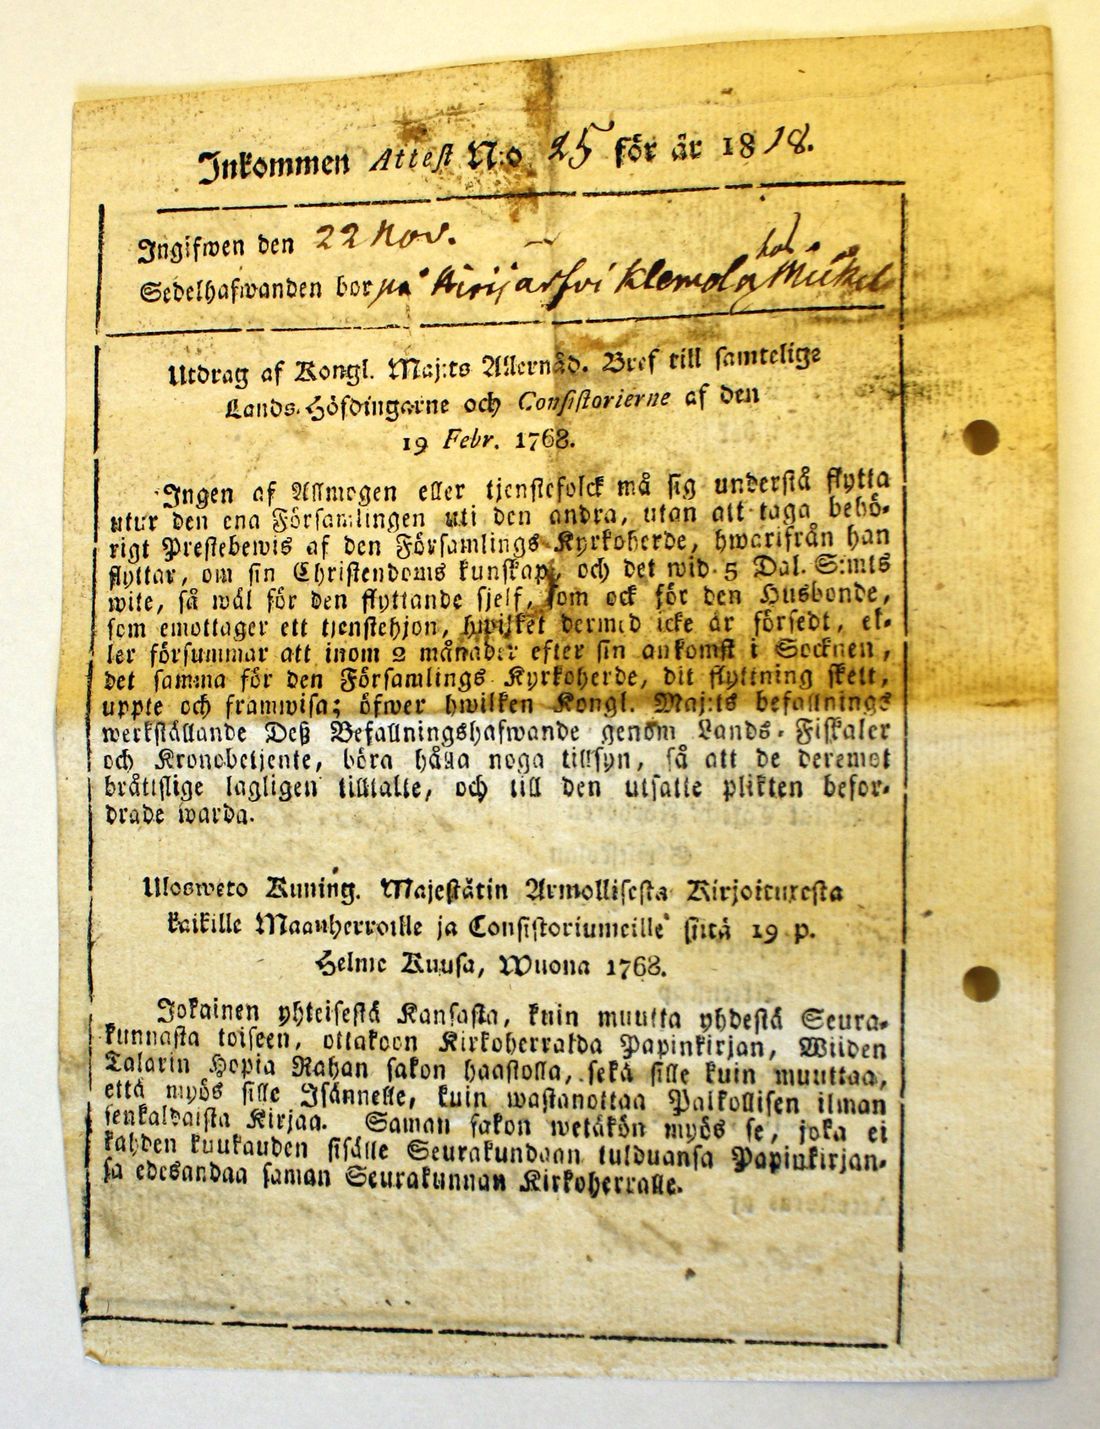 Inkommen Attest N:o 25 för år 1818.
Ingifwen den 22 Nov.
Sedelhafwanden bor på Kirijarfvi Klemola hos Mickel
Utdrag af Kongl. Maj:ts Allernåd. Bref till samtelige
Lands-Höfdingarne och Consistorierne af den
19 Febr. 1768.
Ingen af Allmogen eller tjenstefolck må sig understå flytta
utur den ena Församlingen uti den andra, utan att taga behö-
rigt Prestebewis af den Församlings Kyrkoherde, hwarifrån han
flyttar, om sin Christendoms kunskap, och det wid 5 Dal. S:mts
wite, så wäl för den flyttande sjelf, som ock för den Husbonde,
som emottager ett tjenstehjon, hwilket dermed icke är försedt, el-
ler försummar att inom 2 månader efter sin ankomst i Socknen,
det samma för den Församlings Kyrkoherde, dit flyttning skett,
uppte och framwisa; öfwer hwilken Kongl. Maj:ts befallnings
werkställande Deß Befallningshafwande genom Lands-Fiskaler
och Kronobetjente, böra hålla noga tillsyn, så att de deremot
bråttslige lagligen tilltalte, och till den utsatte plikten befor-
drade warda.
Uloswеto Kuning. Majestätin Armollisesta Kirjoituxesta
kaikille Maanherroille ja Consistoriumeille siitä 19 p.
Helme Kuusa, Wuona 1768.
Jokainen yhteisestä Kansasta, kuin muutta yhdestä Seura-
kunnasta toiseen, ottakoon Kirkoherralda Papinkirjan, Wiiden
Talarin Hopia Rahan sakon haastolla, sekä sille kuin muuttaa,
että myös sille Isännelle, kuin wastanottaa Palkollisen ilman
senkaldaista Kirjaa. Saman sakon wetäkön myös se, joka ei
kahden kuukauden sisälle Seurakundaan tulduansa Papinkirjan-
sa edesandaa saman Seurakunnan Kirkoherralle.